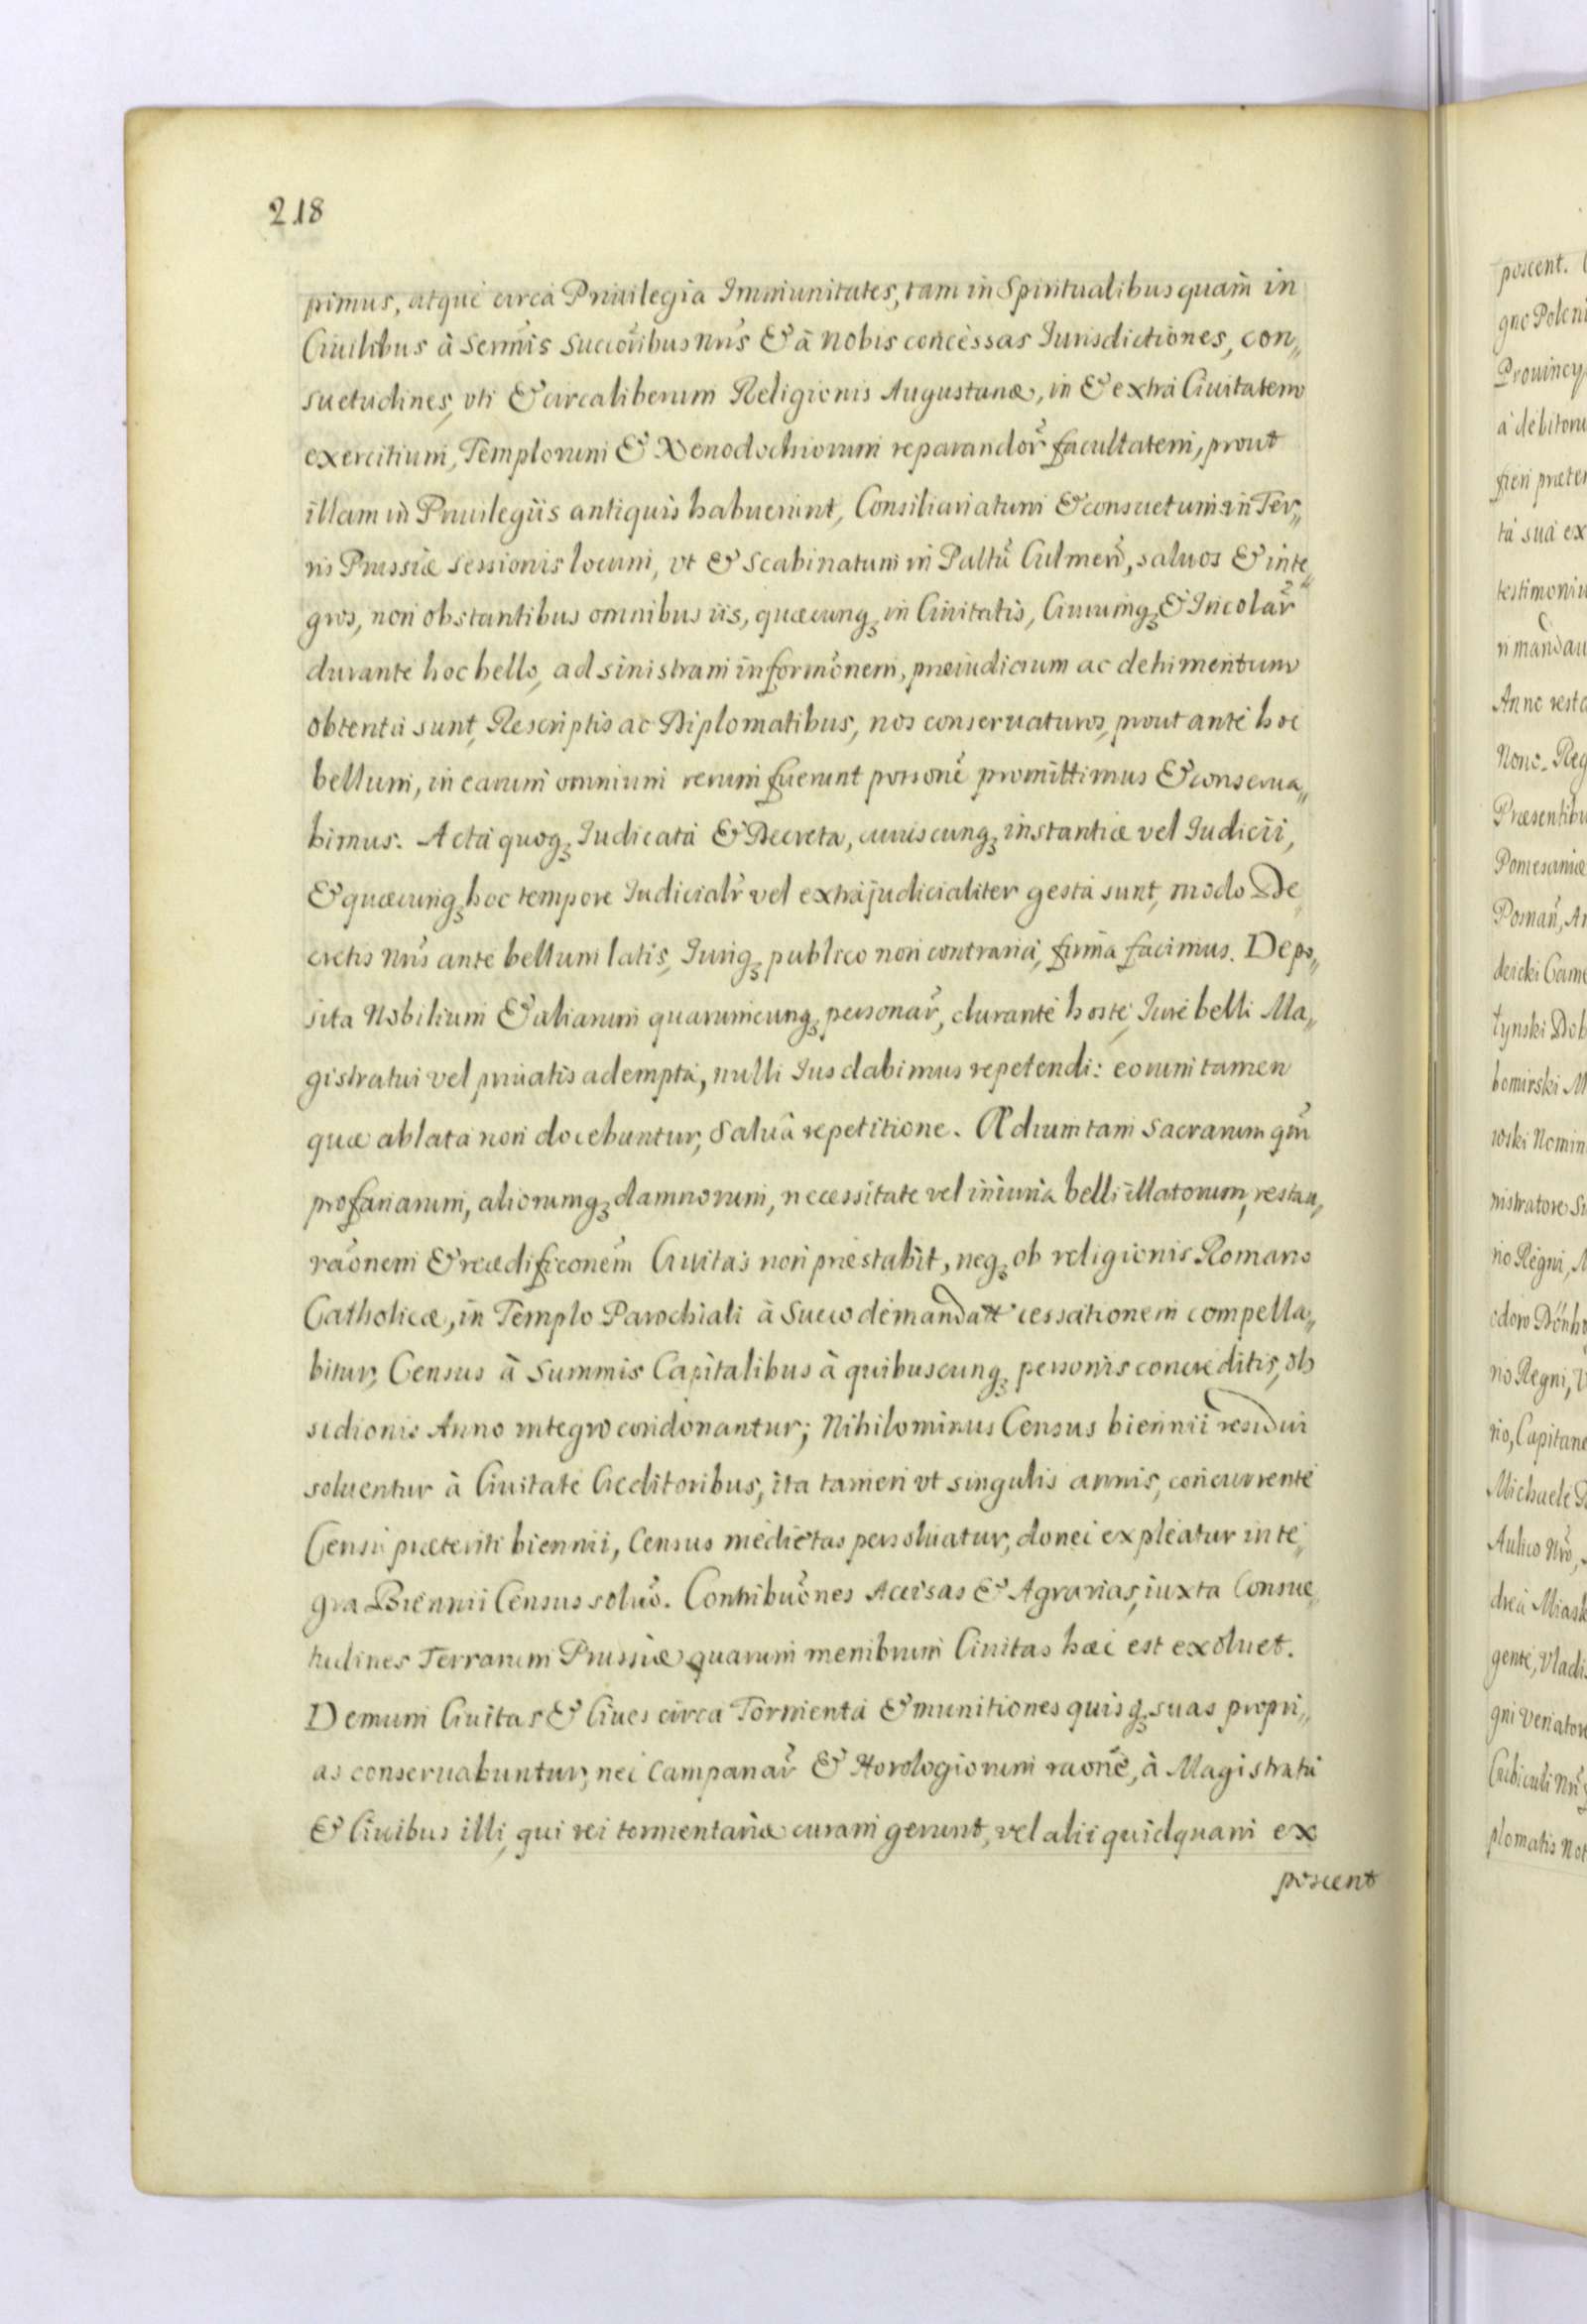 218
pimus, atque circa Priuilegia Immunitates, tam in Spiritualibus quam in
Ciuilibus à Sermis Succoribus nris & à nobis concessas Iurisdictiones, con„
suetudines, vti & circa liberum Religionis Augustanæ, in & extra Ciuitatem
exercitium, Templorum & Xenodochiorum reparandor facultatem, prout
illam in Priuilegiis antiquis habuerunt, Consiliariatum & consuetum in Ter„
ris Prussiæ sessionis locum, vt & Scabinatum in Paltu Culmen, saluos & inte„
gros, non obstantibus omnibus iis, quæcunq; in Ciuitatis, Ciuiumq; & Incolar
durante hoc bello, ad sinistram informonem, præiudicium ac detrimentum
obtenta sunt, Rescriptis ac Diplomatibus, nos conseruaturos, prout ante hoc
bellum, in earum omnium rerum fuerunt possone promittimus & conserua„
bimus. Acta quoq; Iudicata & Decreta, cuiuscunq; instantiæ vel Iudicii,
& quæcunq; hoc tempore Iudicialr vel extrajudicialiter gesta sunt, modo De„
cretis nris ante bellum latis, Iuriq; publico non contraria, firma facimus. Depo„
sita Nobilium & aliarum quarumcunq; personar, durante hoste, Iure belli Ma„
gistratui vel priuatis adempta, nulli Ius dabimus repetendi: eorum tamen
quæ ablata non docebuntur, Saluâ repetitione. Ædium tam sacrarum qm
profanarum, aliorumq; damnorum, necessitate vel iniuria belli illatorum, restau„
raonem & reædificonem Ciuitas non præstabit, neq; ob religionis Romano
Catholicæ, in Templo Parochiali à Sueco demandatt cessationem compella„
bitur, Census à Summis Capitalibus à quibuscunq; personis concreditis, ob
sidionis Anno integro condonantur; Nihilominus Census biennii residui
soluentur à Ciuitate Creditoribus, ita tamen vt singulis annis, concurrente
Censu præteriti biennii, Census medietas persoluatur, donec expleatur inte„
gra Biennii Census soluo. Contribuones Accisas & Agrarias, iuxta Consue„
tudines Terrarum Prussiæ quarum membrum Ciuitas hæc est exoluet.
Demum Ciuitas & Ciues circa Tormenta & munitiones quisq; suas propri„
as conseruabuntur, nec Campanar & Horologiorum raone, à Magistratu
& Ciuibus illi, qui rei tormentariæ curam gerunt, vel alii quidquam ex
poscent
poscent.
gno Poloni
Prouincy
à debitoru
fieri præter
ta sua ex
testimoniu
ri mandau
Anno
Nono. Reg
Præsentibu
Pomesaniæ
Poman, An
deicki Came
tynski Dob
bomirski M
wski Nomin
nistratore Si
rio Regni, M
odoro Dönho
rio Regni, V
rio, Capitane
Michaele D
Aulico Nro,
drea Miask
gente, Vladis
gni Venatore
Cubiculi Nri
plomatis Not